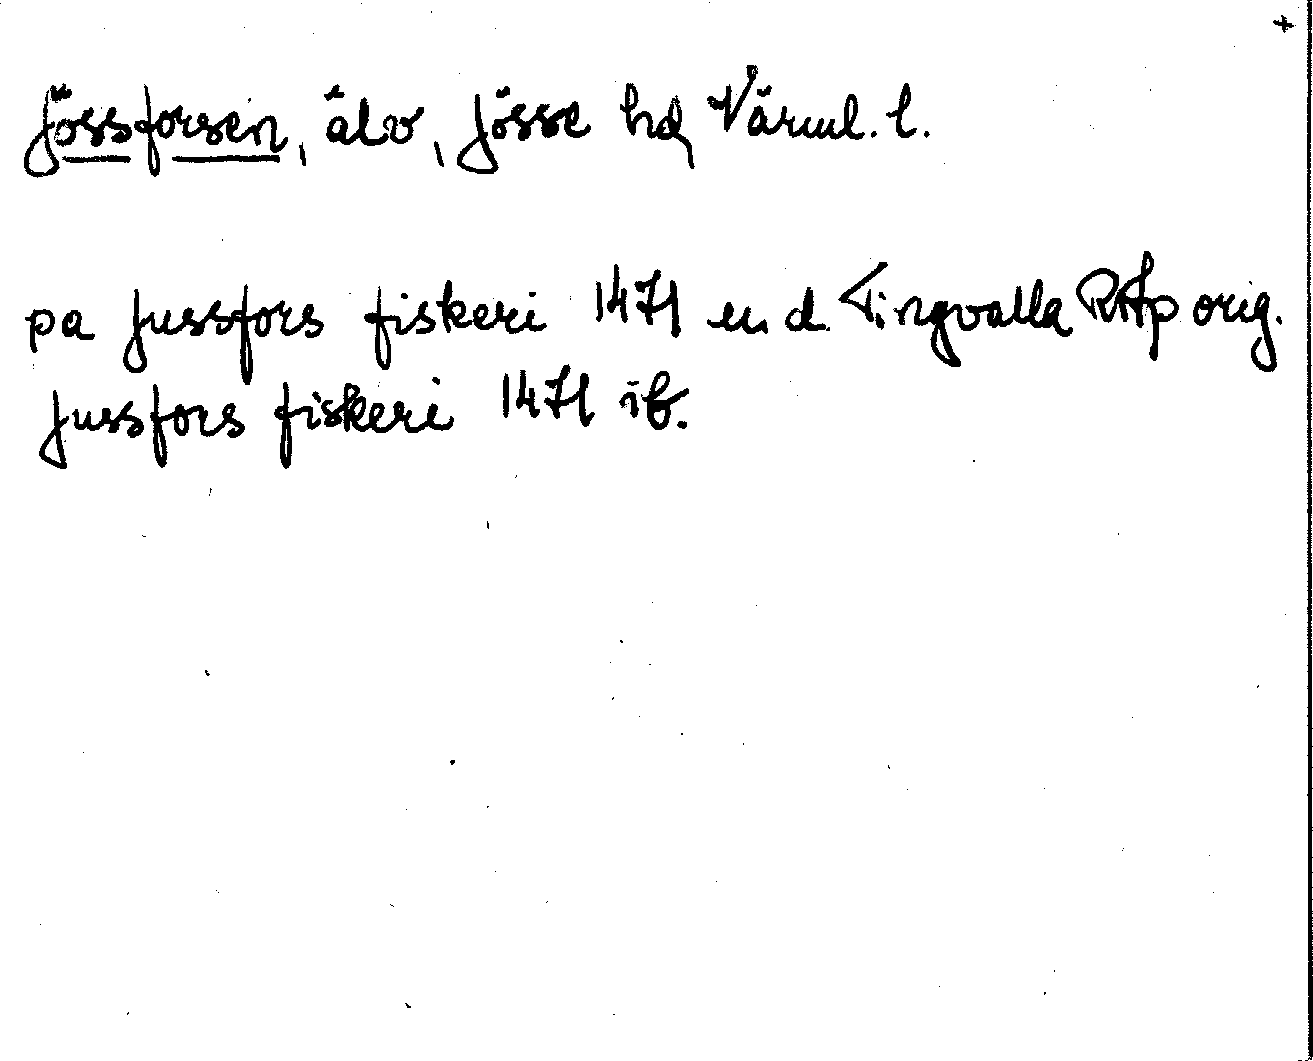 +
Jössforsen, älv, Jösse hd Värml. l.
pa Jussfors fiskeri 1471 u. d. Tingvalla RAp orig.
Jussfors fiskeri 1471 ib.